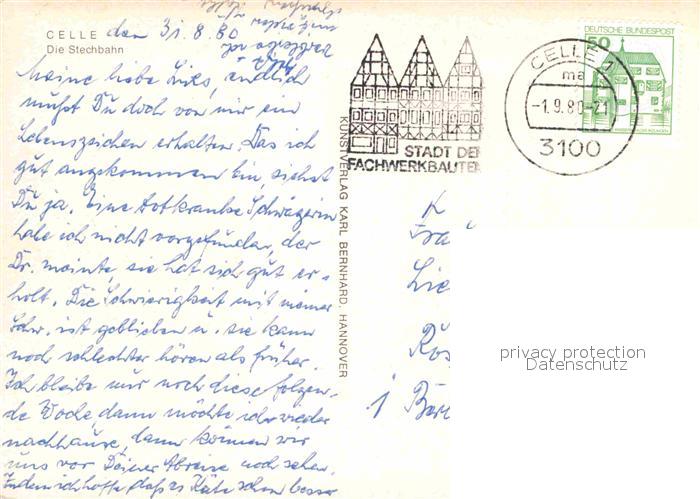 CELLE den 31.8.80
Die Stechbahn
Meine liebe Lies, endlich
mußt Du doch von mir ein
Lebenszeichen erhalten. Das ich
gut angekommen bin, siehst
Du ja. Eine totkranke Schwägerin
habe ich nicht vorgefunden, der
Dr. meinte, sie hat sich gut er-
holt. Die Schwierigkeit mit meiner
Schw. ist geblieben u. sie kann
noch schlechter hören als früher.
Ich bleibe nur noch diese folgen-
de Woche, dann möchte ich wieder
nachhause, dann können wir
uns vor Deiner Abreise noch sehen.
Indem ich hoffe, daß es Käte schon besser
KUNSTVERLAG KARL BERNHARD, HANNOVER
STADT DER
FACHWERKBAUTEN
CELLE 1
ma
-1.9.80-21
3100
50
DEUTSCHE BUNDESPOST
Lie
1
privacy protection
Datenschutz